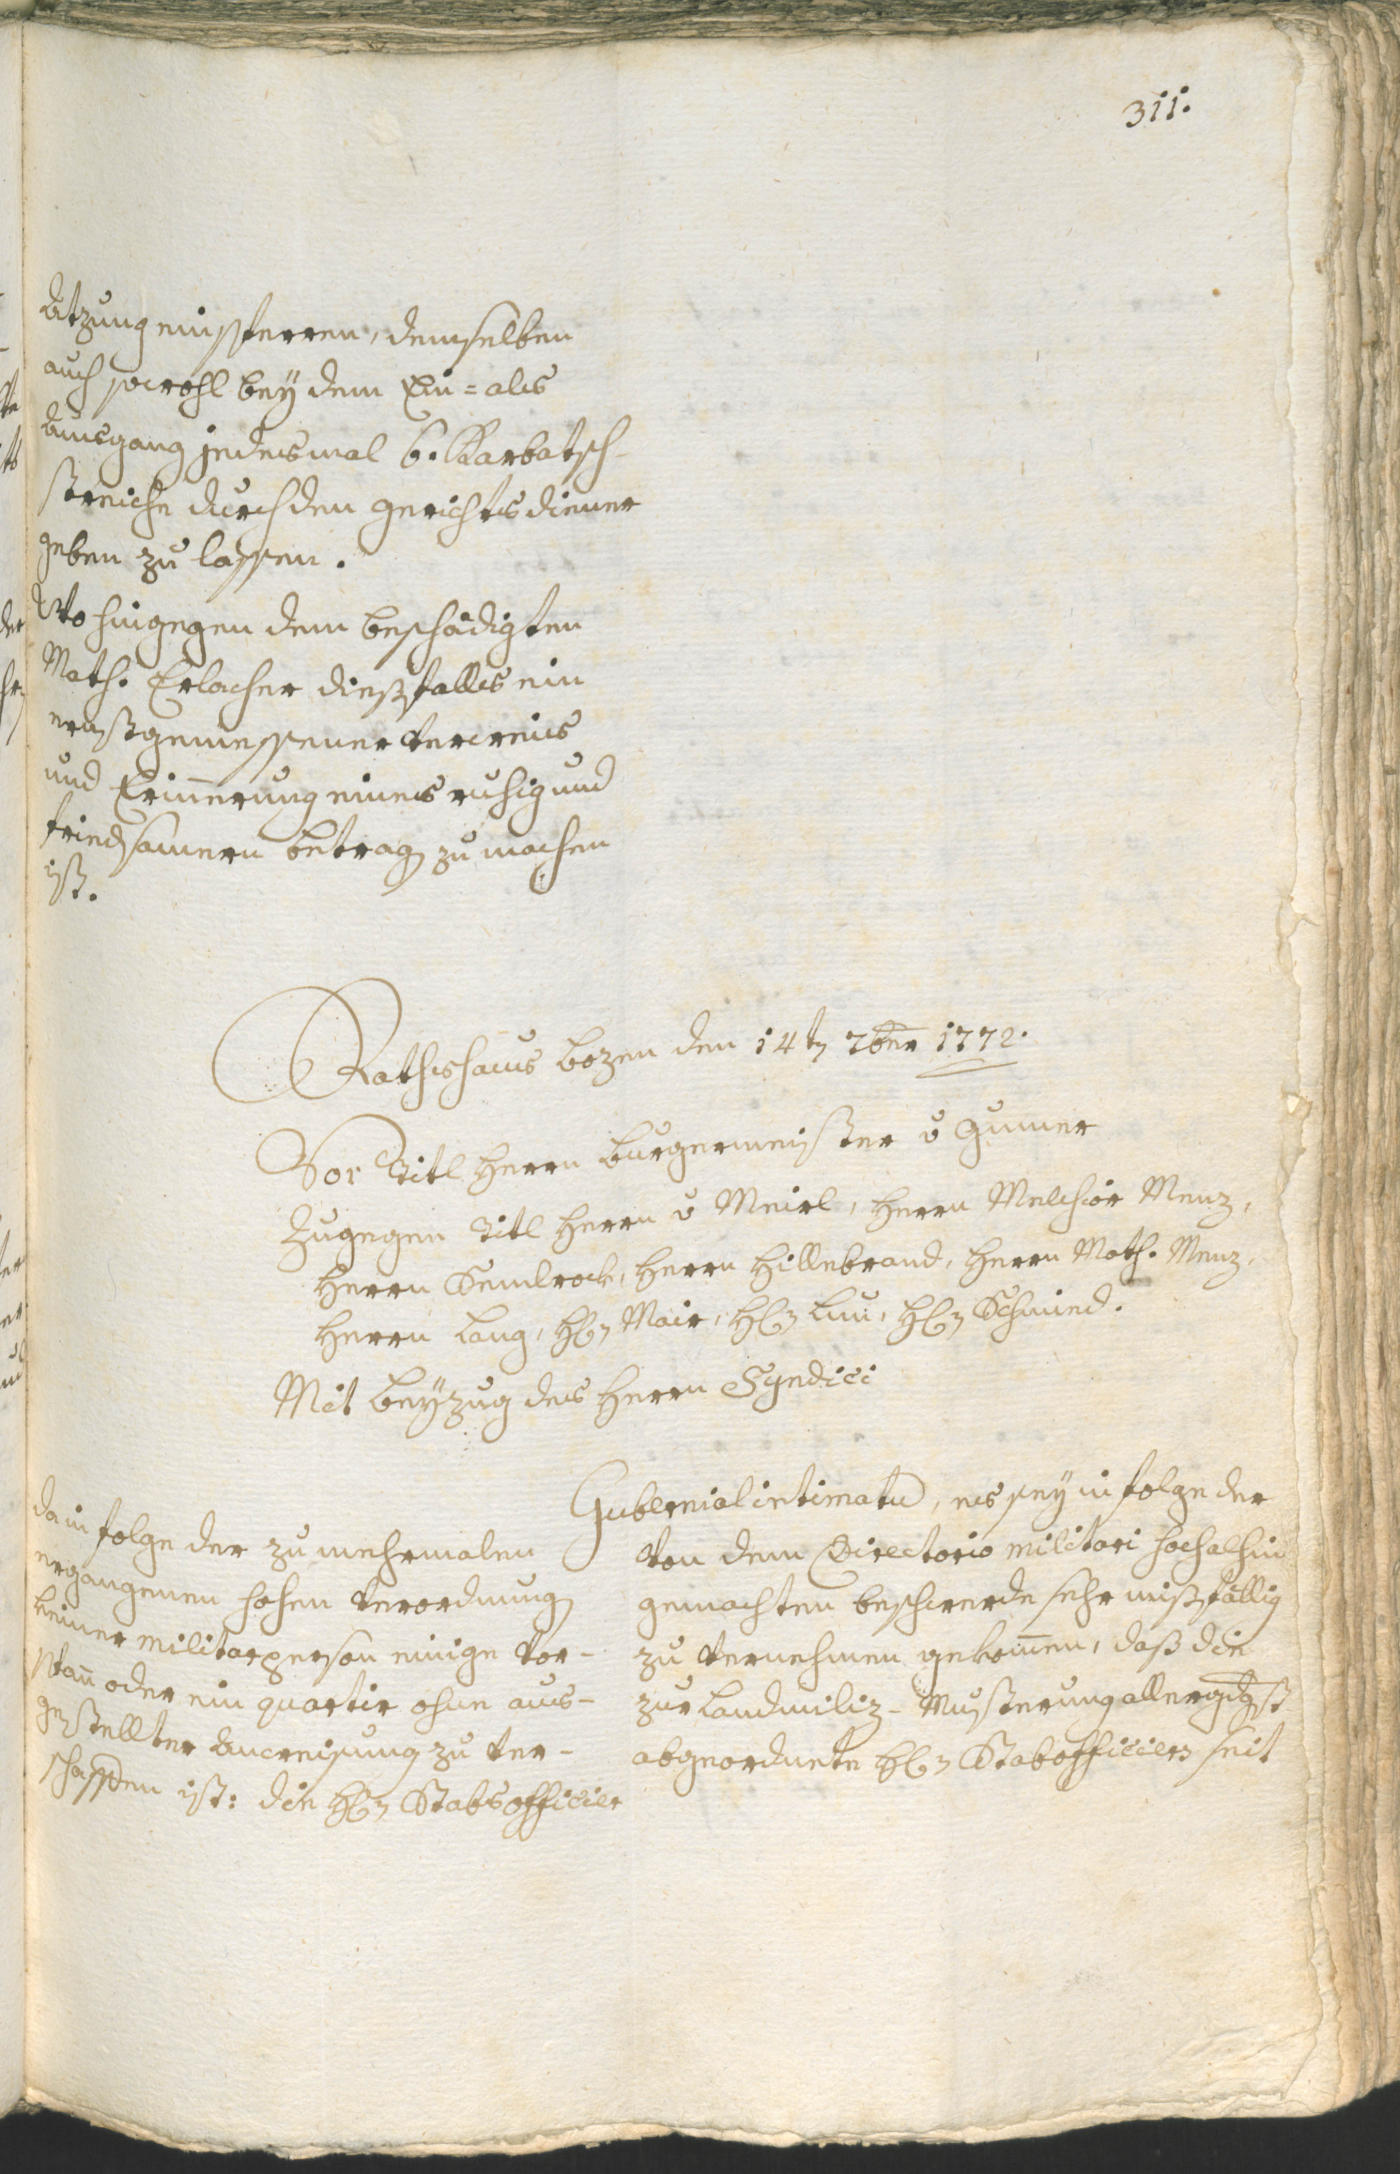 311.
Atzung einsperren, demselben
auch sowohl bey dem Ein= als
Ausgang jedesmal 6. Karbatsch-
streiche durch den Gerichtsdiener
geben zu lassen.
Wo hingegen dem beschädigten
Math. Erlacher dießfalls ein
ernstgemessener Verweis
und Erinerung eines ruhig und
friedsamern Betrag zu machen
ist.
Rathshaus Bozen den 14tn 7ber 1772.
Vor Titl Herrn Burgermeister v Gumer
Zugegen Titl Herrn v Meirl, Herrn Melchior Menz,
Herrn Semlrock, Herrn Hillebrand, Herrn Math. Menz,
Herrn Lang, Hln Mair, Hln Lun, Hln Schmied.
Mit Beyzug des Herrn Syndici
Gubernial intimatū, es sey in folge der
von dem Directorio militari hochalhin
gemachten Beschwerde sehr mißfällig
zu vernehmen gekomen, daß die
zur Landmiliz-Musterung allergdgst
abgeordnete Hln Stabofficiers seit
da in folge der zu mehrmalen
ergangenen hohen Verordnung
keiner militarperson einige Vor-
span oder ein quartir ohne aus-
gestellter Anweisung zu ver-
schaffen ist: die Hln Stabsofficier